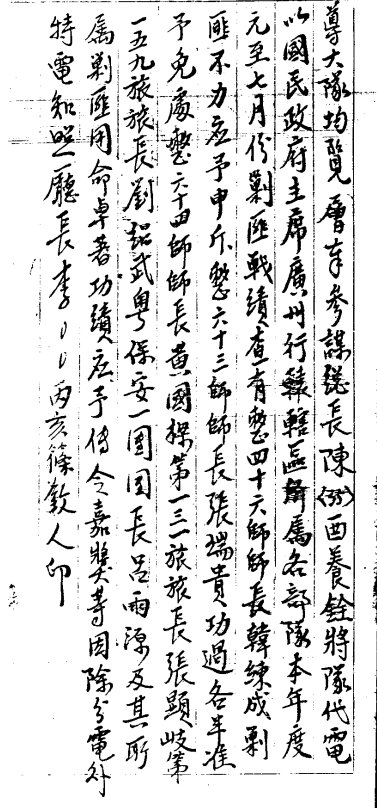 導大隊均覽層奉參謀總長陳(35)酉養銓將隊代電
以國民政府主席廣州行轅轄區所屬各部隊本年度
元至七月份剿匪戰績查有整四十六師師長韓練成剿
匪不力應予申斥整六十三師師長張瑞貴功過各半准
予免處整六十四師師長黃國樑第一三一旅旅長張顯岐第
一五九旅旅長劉紹武粵保安一團團長呂雨源及其所
屬剿匪用命卓著功績應予傳令嘉獎等因除分電外
特電知照廳長李〃〃丙亥篠教人印